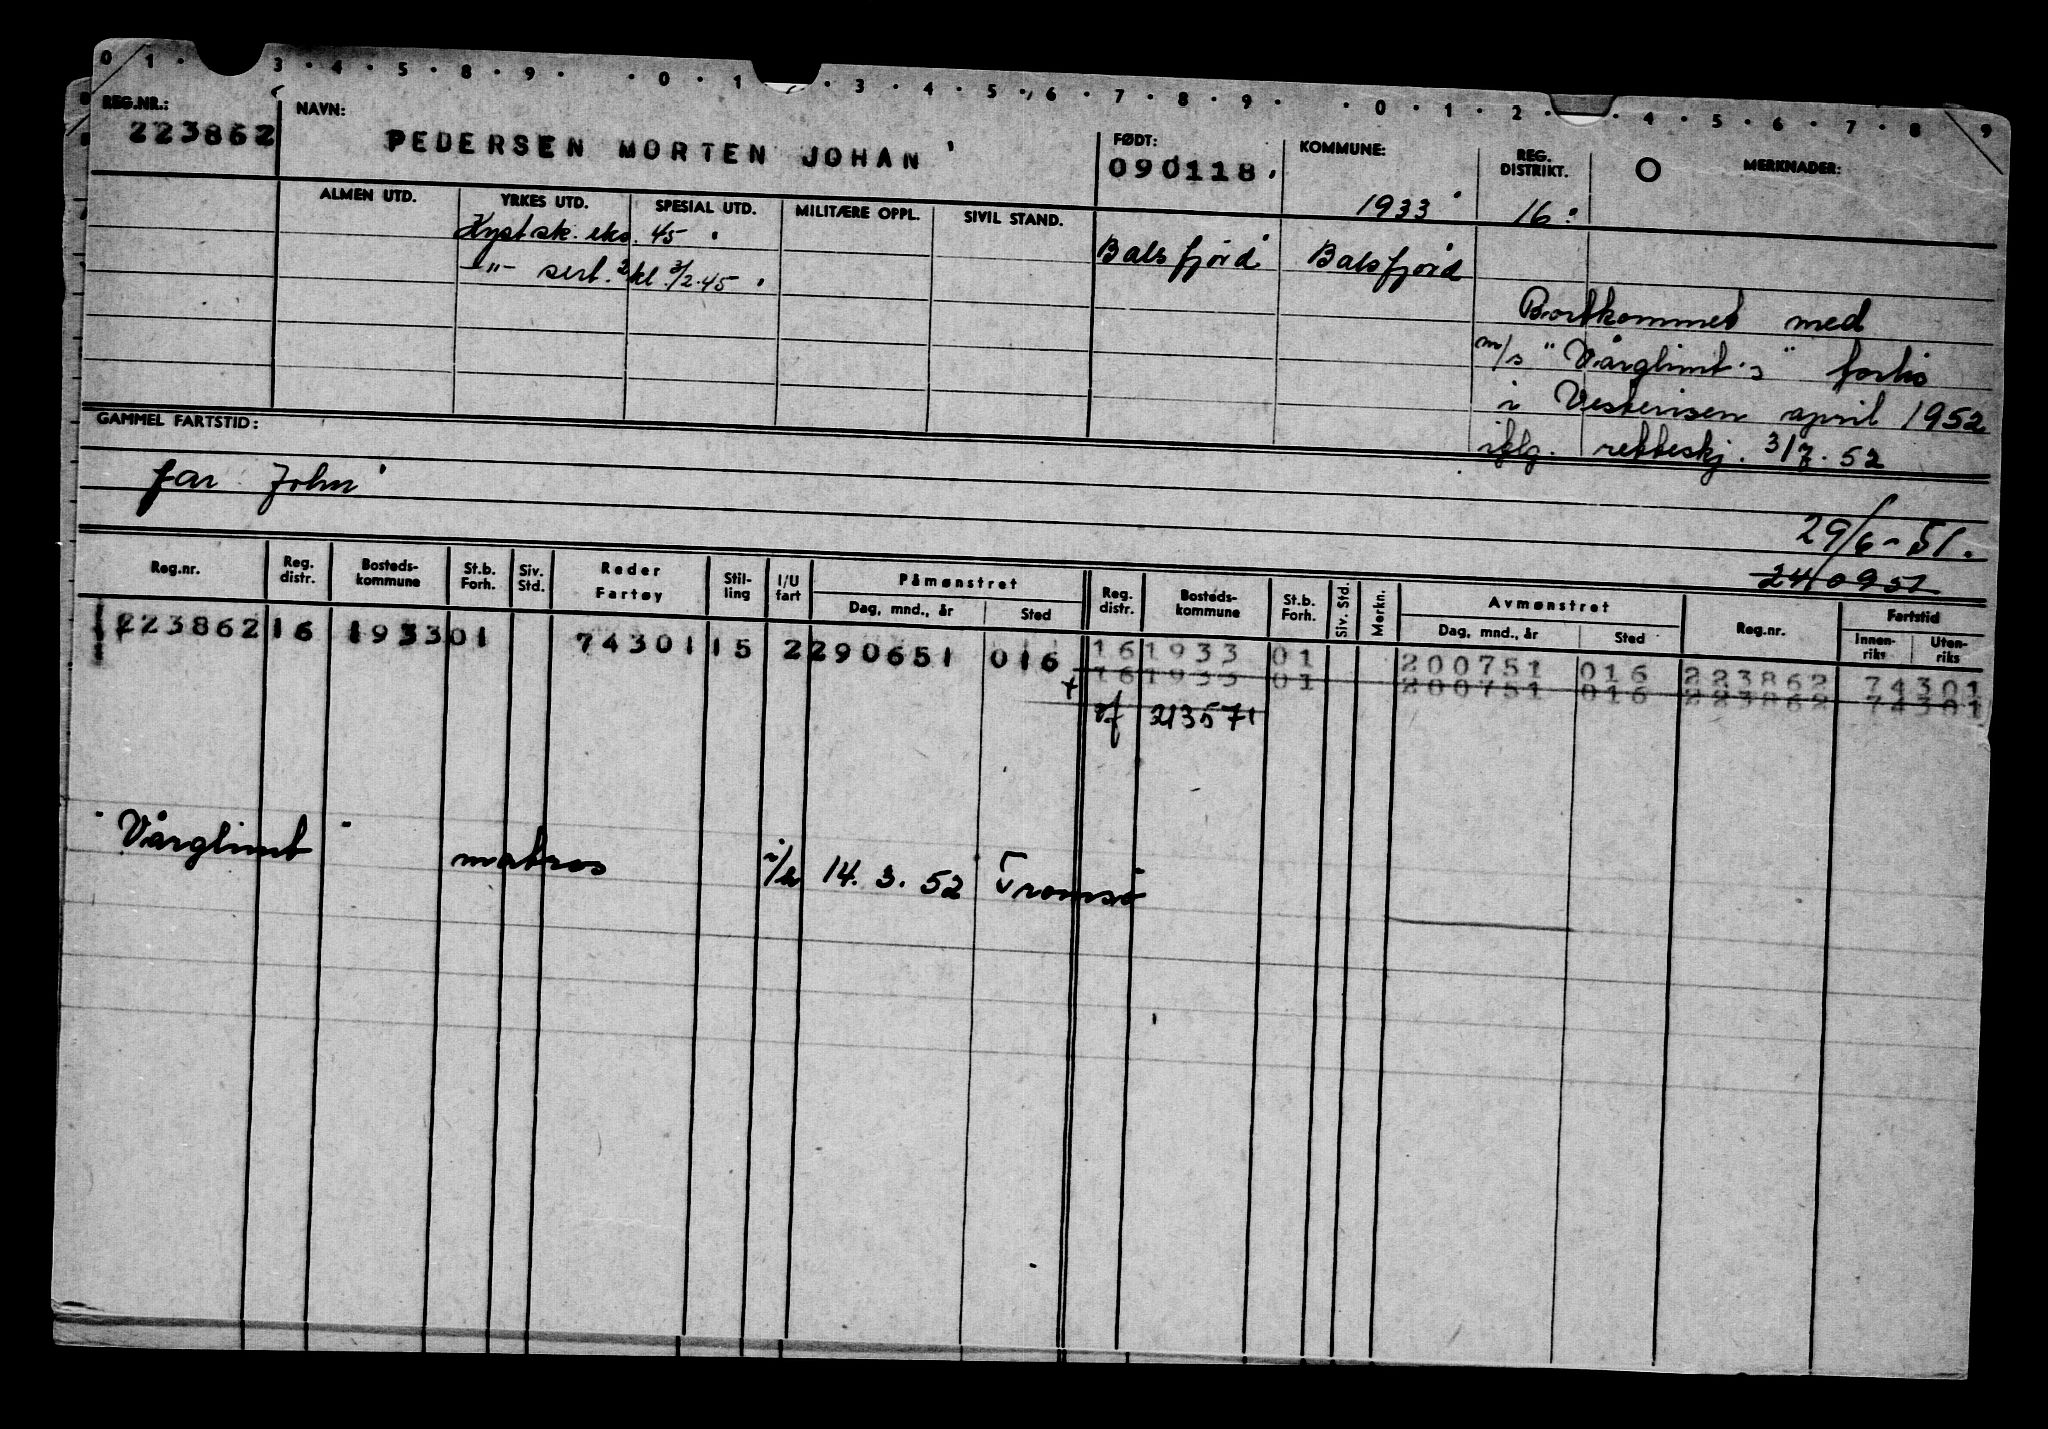 0 1 · 3 · 4 · 5 · 8 · 9 · · 0 · 1 · 3 · 4 · 5 · 6 · 7 · 8 · 9 · · 0 · 1 · 2 · 4 · 5 · 6 · 7 · 8 9
REG.NR.: NAVN: FØDT: KOMMUNE: REG. DISTRIKT. MERKNADER:
223862 PEDERSEN MORTEN JOHAN 090118. 1933 16
ALMEN UTD. YRKES UTD. SPESIAL UTD. MILITÆRE OPPL. SIVIL STAND.
Kystsk. eks. 45 Balsfjord Balsfjord
-"- sert. 2 kl 3/2.45
Bortkommet med
m/s "Vårglimt's" forlis
i Vesterisen april 1952
iflg. retteskj. 3/7.52
GAMMEL FARTSTID:
far John
29/6-51.
240951
Reg.nr. Reg. distr. Bosteds- kommune St.b. Forh. Siv. Std. Reder Fartøy Stil- ling I/U fart Påmønstret Dag, mnd., år Sted Reg. distr. Bosteds- kommune St.b. Forh. Siv. Std. Merkn. Avmønstret Dag, mnd., år Sted Reg.nr. Fartstid Innen- riks Uten- riks
223862 16 1933 01 74301 15 2 290651 016 16 1933 01 200751 016 223862 74301
16 1933 01 200751 016 223862 74301
213571
"Vårglimt" matros 14.3.52 Tromsø